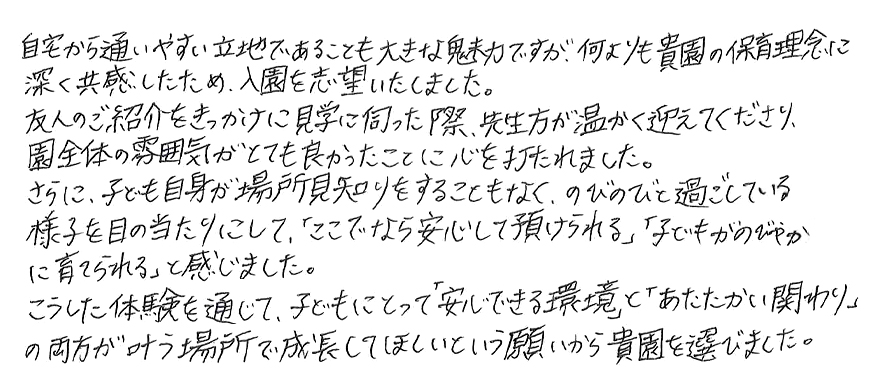 自宅から通いやすい立地であることも大きな魅力ですが、何よりも貴園の保育理念に
深く共感したため、入園を志望いたしました。
友人のご紹介をきっかけに見学に伺った際、先生方が温かく迎えてくださり、
園全体の雰囲気がとても良かったことに心を打たれました。
さらに、子ども自身が場所見知りをすることもなく、のびのびと過ごしている
様子を目の当たりにして、「ここでなら安心して預けられる」「子どもがのびやか
に育てられる」と感じました。
こうした体験を通じて、子どもにとって「安心できる環境」と「あたたかい関わり」
の両方が叶う場所で成長してほしいという願いから貴園を選びました。